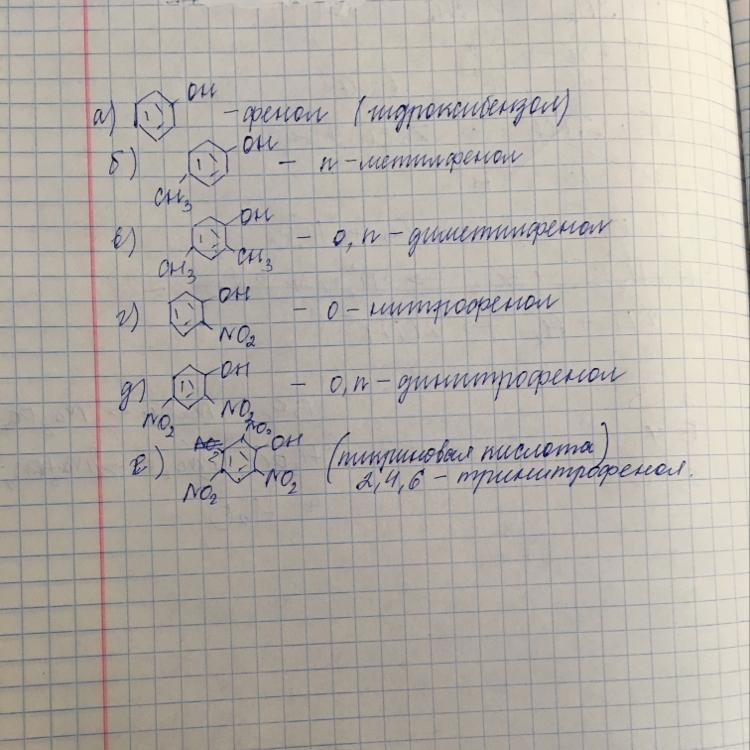 а) OH – фенол (гидроксибензол)
б) OH CH3 – п-метилфенол
в) OH CH3 CH3 – о,п-диметилфенол
г) OH NO2 – о-нитрофенол
д) OH NO2 NO2 – о,п-динитрофенол
е) NO2 OH NO2 NO2 (пикриновая кислота)
2,4,6-тринитрофенол.